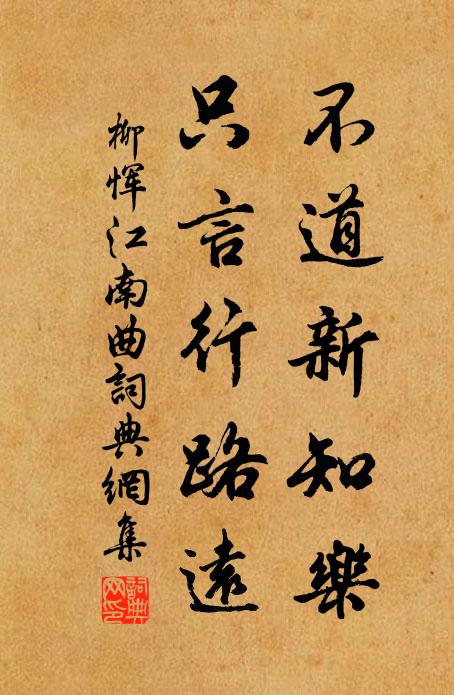 不道新知樂
只言行路遠
柳惲江南曲詞典網集
詞典网印